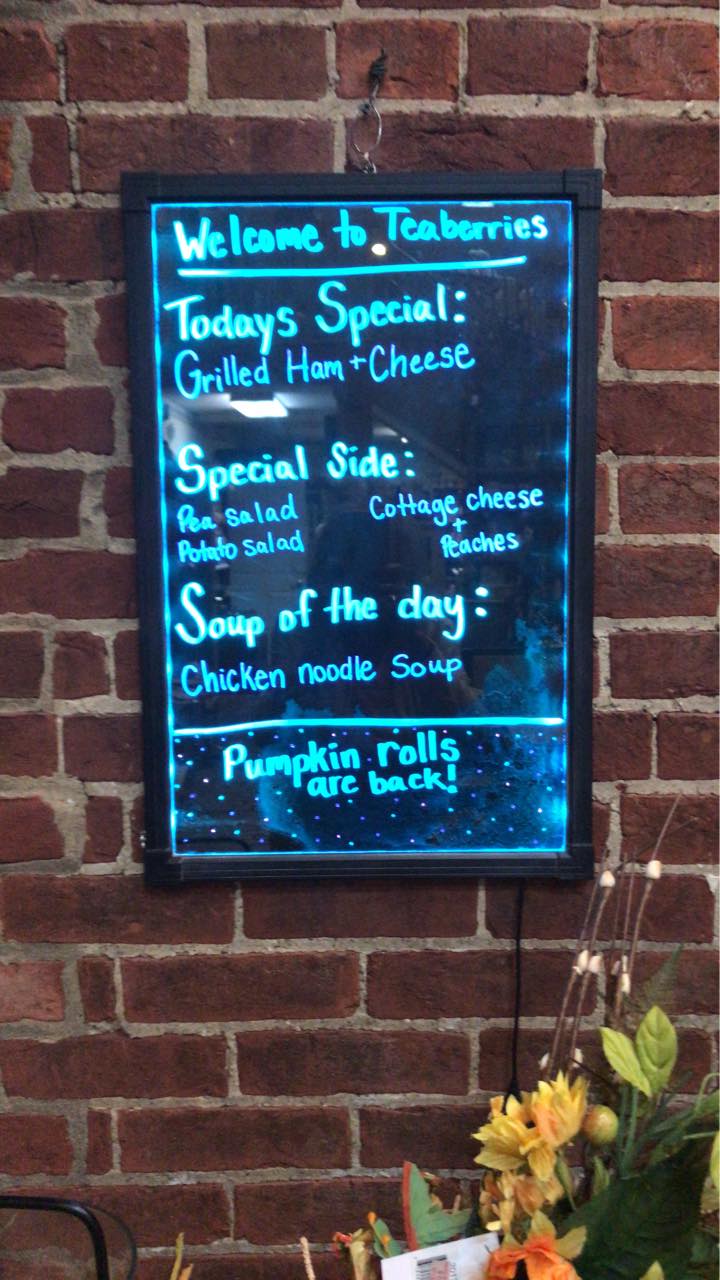 Welcome to Teaberries
Todays Special:
Grilled Ham + Cheese
Special Side:
Pea salad
Potato salad
Cottage cheese
+
Peaches
Soup of the day:
Chicken noodle Soup
Pumpkin rolls
are back!